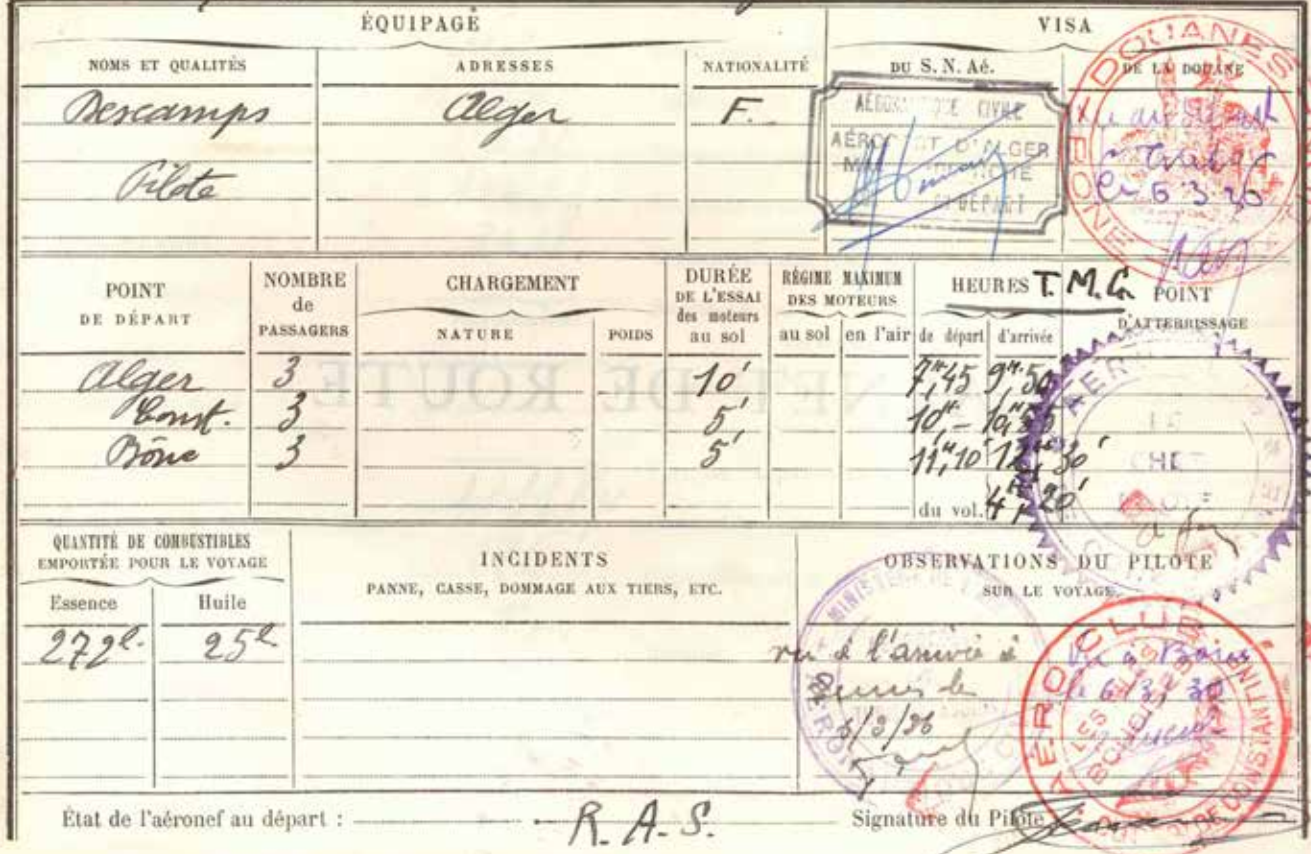 ÉQUIPAGE
VISA
NOMS ET QUALITÉS
ADRESSES
NATIONALITÉ
DU S. N. Aé.
DE LA DOUANE
Descamps
Alger
F.
Pilote
AÉRONAUTIQUE CIVILE
AÉROPORT D'ALGER
DÉPART
DOUANES
BONE
6 3 30
POINT
DE DÉPART
NOMBRE
de
PASSAGERS
CHARGEMENT
NATURE
POIDS
DURÉE
DE L'ESSAI
des moteurs
au sol
RÉGIME MAXIMUM
DES MOTEURS
au sol
en l'air
HEURES T.M.G.
de départ
d'arrivée
POINT
D'ATTERRISSAGE
Alger 3 10' 7H,45 9H,50
Const. 3 5' 10H,-
Bône 3 5' 11H,10' 12H,30'
du vol. 4H 20'
QUANTITÉ DE COMBUSTIBLES
EMPORTÉE POUR LE VOYAGE
Essence
Huile
272l.
25l
INCIDENTS
PANNE, CASSE, DOMMAGE AUX TIERS, ETC.
OBSERVATIONS DU PILOTE
SUR LE VOYAGE.
MINISTÈRE DE L'
vu à l'arrivée à
le
AÉRO CLUB
LES AILES
vu à Bône
le 6/3/30
État de l'aéronef au départ : R.A.S.
Signature du Pilote